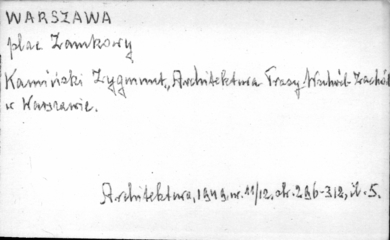 WARSZAWA
plac Zamkowy
Kamiński Zygmunt, „Architektura Trasy Wschód-Zachód
w Warszawie.
Architektura, 1949, nr. 11/12, str. 296-312, il. 5.